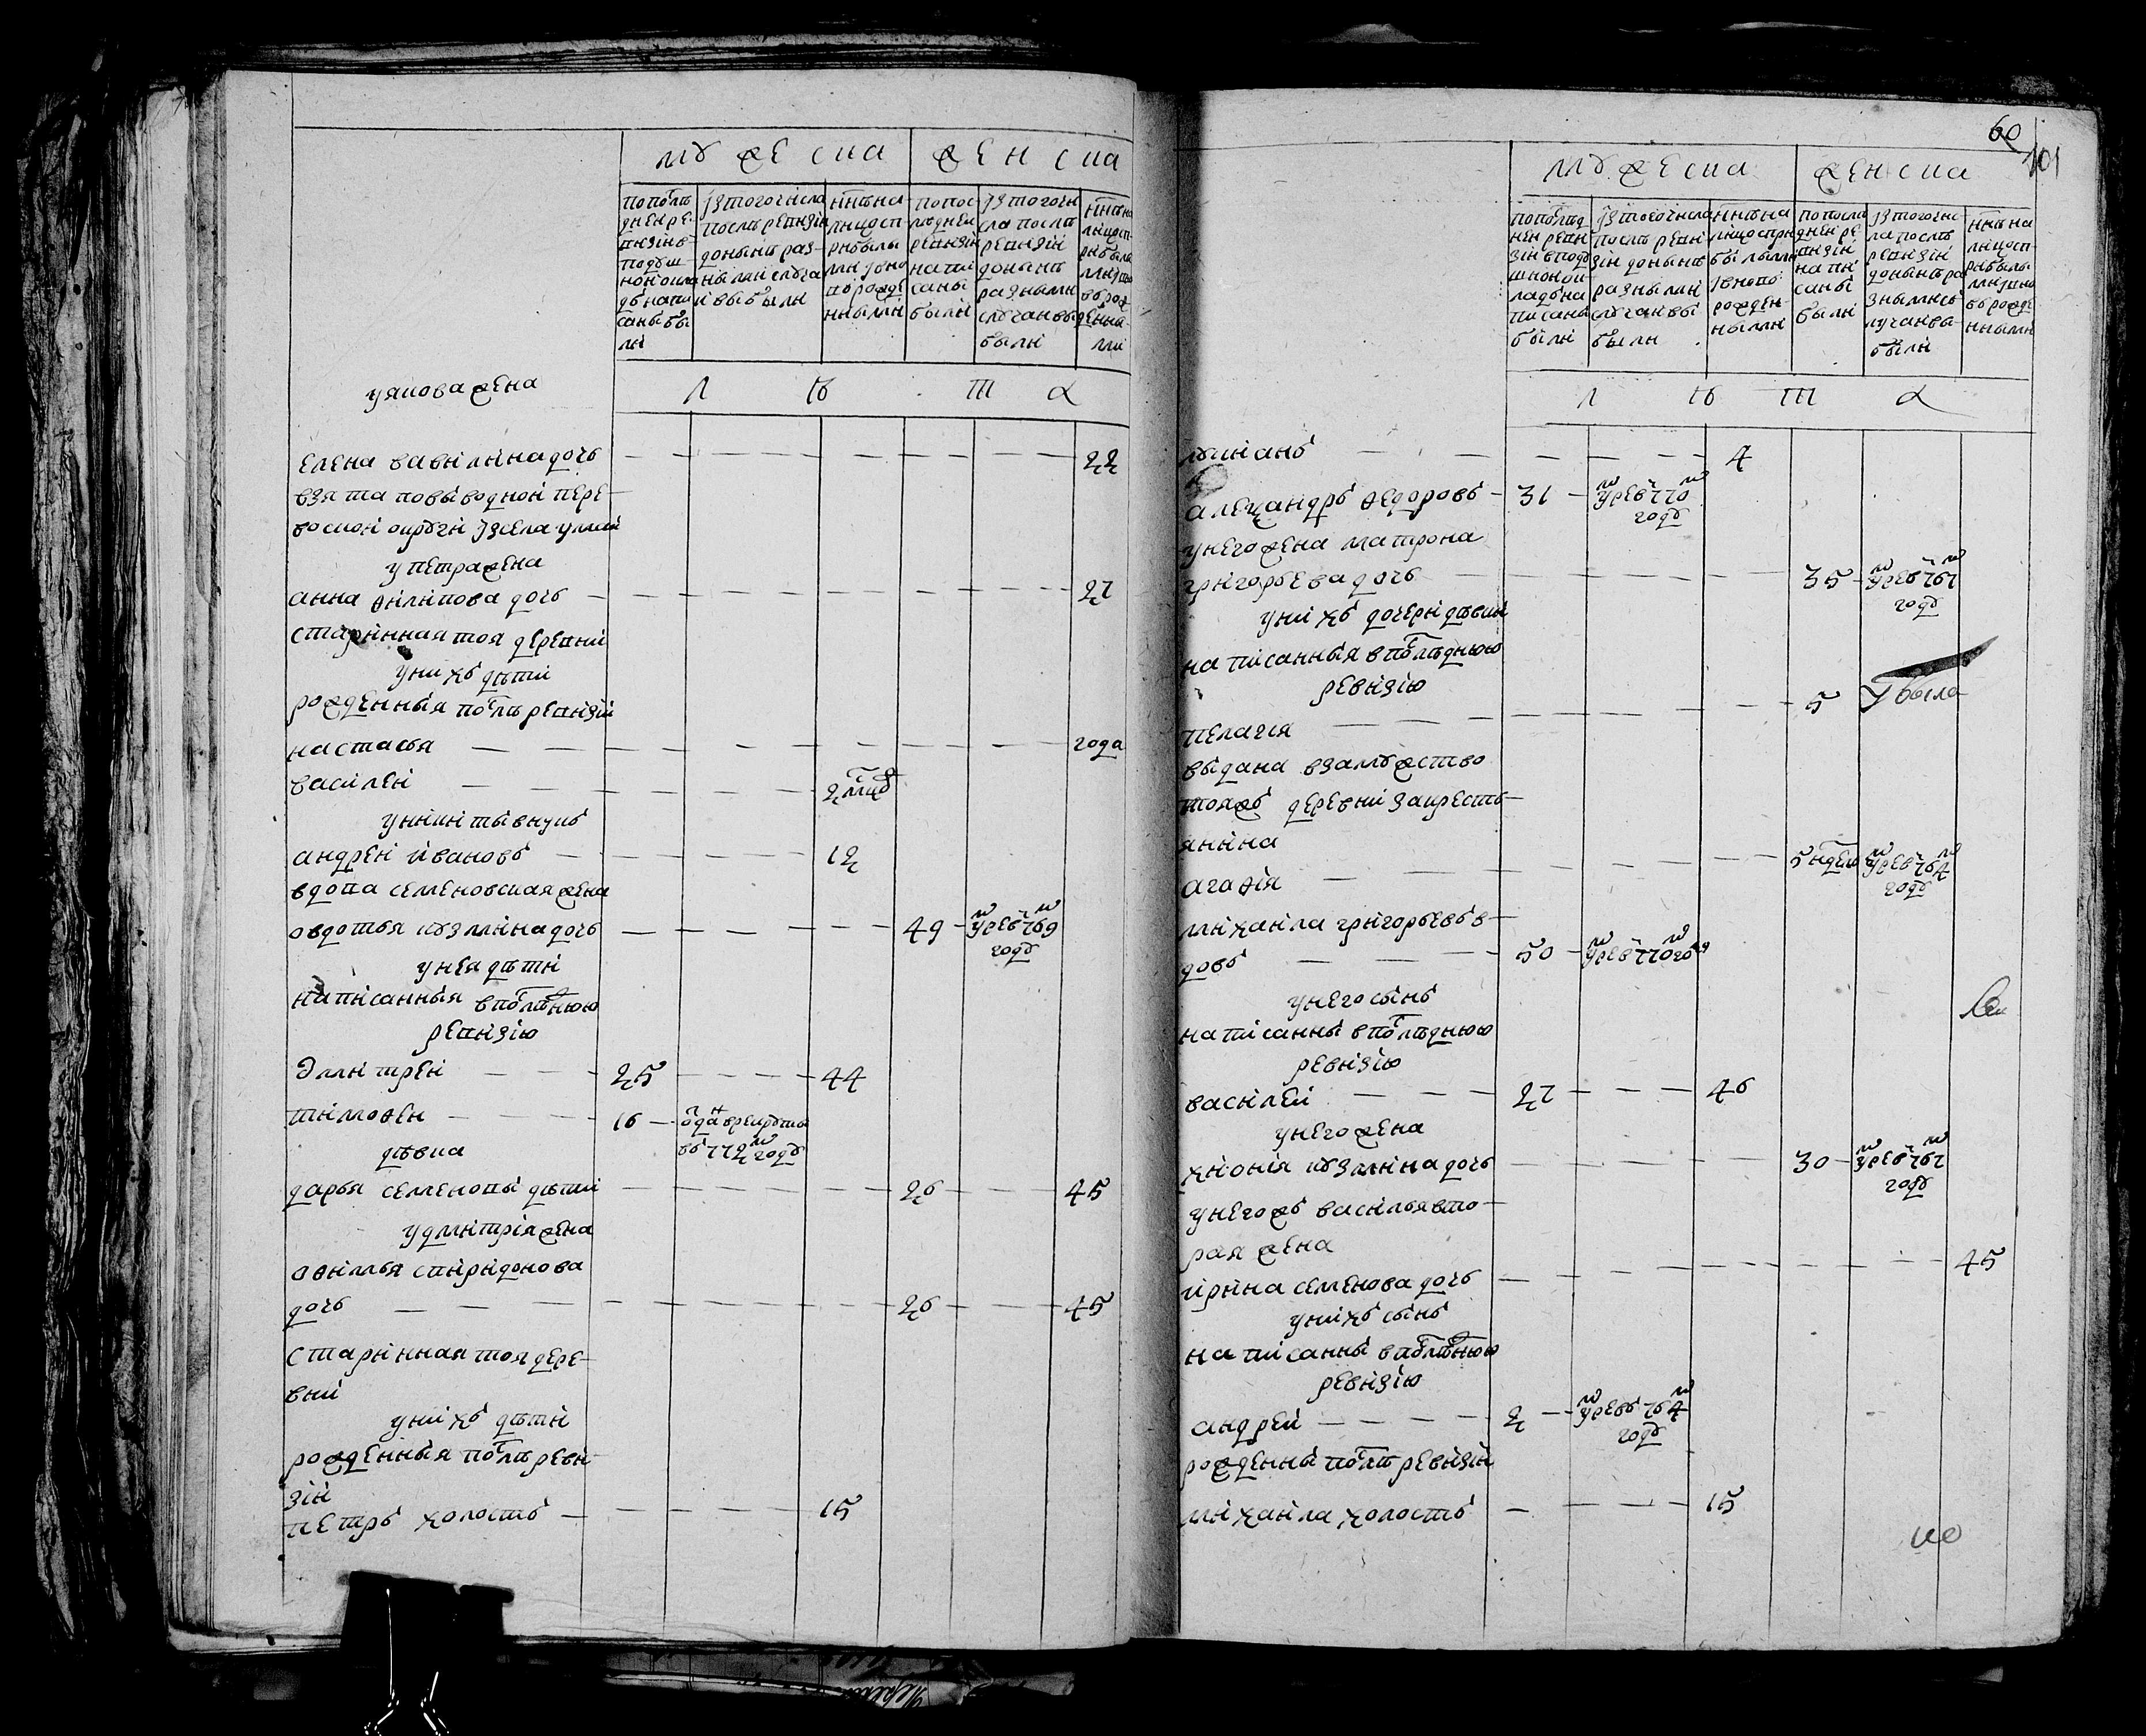 мужеска женска
по последней ревизии в подушной оклад написаны были
из того числа после ревизии до ныне разными случаи выбыли
ныне на лицо с прибылыми и вновь рожденными
по последней ревизии написаны были
из того числа после ревизии до ныне разными случаи выбыли
ныне на лицо с прибылыми и вновь рожденными
у якова жена
л ѣ т а
елена вавилина дочь 22
взята по выводной пере-
воской округи из села
у петра жена
анна филипова дочь 27
старинная тоя деревни
у них дети
рожденныя посль ревизии
настасья года
василеи 2 мцъ
у никиты внукъ
андреи ивановъ 12
вдова семеновская жена
овдотья кузмина дочь 49 умре в 769 году
у нея дѣти
написанныя в последнюю
ревизию
дмитреи 25 44
тимофеи 16 отдан в рекруты
въ 772 году
дѣвка
дарья семеновы дѣти 26 45
у дмитрия жена
офимья спиридонова
дочь 26 45
старинная тоя дере-
вни
у нихъ дѣти
рожденныя после реви-
зии
петръ холостъ 15
60
101
мужеска женска
по последней ревизии в подушной оклад написаны были
из того числа после ревизии до ныне разными случаи выбыли
ныне на лицо с прибылыми и вновь рожденными
по последней ревизии написаны были
из того числа после ревизии до ныне разными случаи выбыли
ныне на лицо с прибылыми и вновь рожденными
л ѣ т а
4
александръ федоровъ 31 умре в 770 году
у него жена матрона
григорьева дочь 35 умре в 767 году
у нихъ дочери дѣвки
написанныя в последнюю
ревизию
пелагея 5 убыла
выдана в замужество
тояж деревни за кресть-
янина
агафия 5 недель умре в 764 году
михаила григорьевъ в-
довъ 50 умре в 770 году
у него сынъ
написанны в последнюю
ревизию
василеи 27 46
у него жена
хиония кузмина дочь 30 умре в 767 году
у негожъ василья вто-
рая жена
ирина семенова дочь 45
у нихъ сынъ
написанны в последнюю
ревизию
андреи 2 умре в 764 году
рожденны после ревизии
михаила холостъ 15